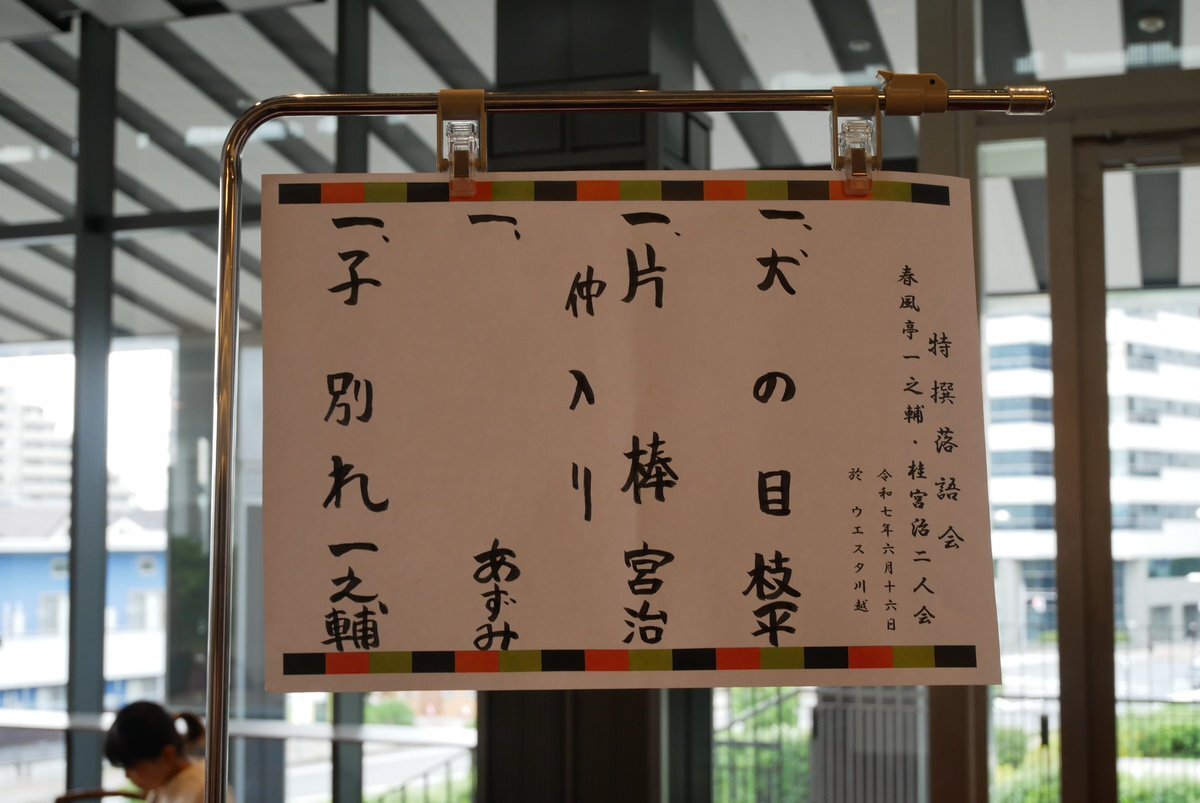 特撰落語会
春風亭一之輔・桂宮治二人会
令和七年六月十六日
於 ウエスタ川越
一、犬の目 枝平
一、片棒 宮治
仲入り
一、 あずみ
一、子別れ 一之輔